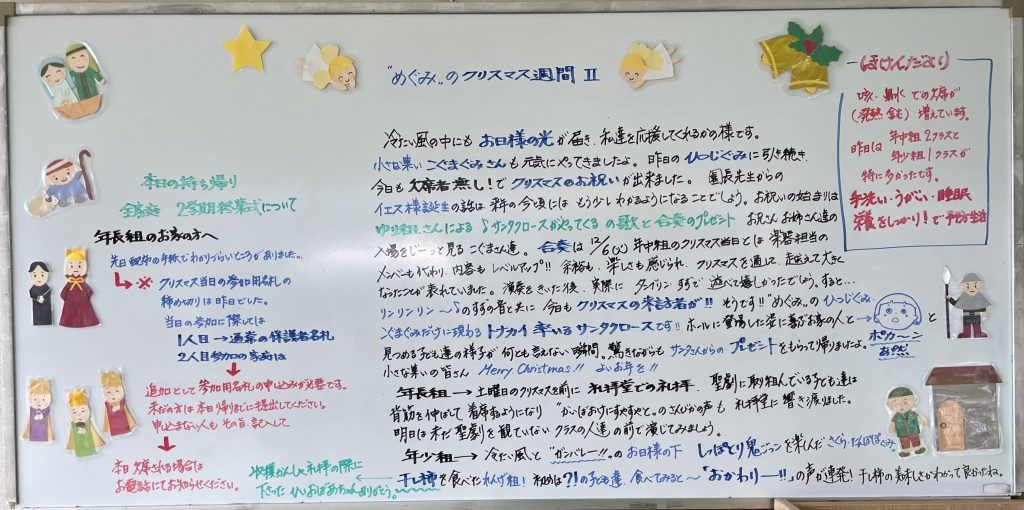 "めぐみ"のクリスマス週間 Ⅱ
冷たい風の中にも お日様の光が届き、私達を応援してくれるかの様です。
小さな集い こぐまぐみさんも元気にやってきましたよ。昨日のひつじぐみに引き続き、
今日も欠席者無し!でクリスマスのお祝いが出来ました。 園長先生からの
イエス様誕生の話は来年の今頃には もう少しわかるようになることでしょう。お祝いの始まりは
ゆり組さんによる ♪サンタクロースがやってくる の歌と合奏のプレゼント お兄さんお姉さん達の
入場をじーっと見る こぐまさん達。合奏は12/6(火)年中組のクリスマス当日とは 楽器担当の
メンバーも代わり、内容もレベルアップ!! 余裕も、楽しさも感じられ、クリスマスを通して、
なったことが表れていました。演奏をきいた後、実際に タンブリン すずで 遊べて嬉しかったでしょう。すると…
リンリンリン〜♪のすずの音と共に 今日もクリスマスの来訪者が!! そうです!! "めぐみ"の ひつじぐみ
こぐまぐみだけに現わる トナカイ率いるサンタクロースです!! ホールに登場した姿に喜ぶお家の人と→
ポカーン
あ然
と
見つめる子ども達の様子が 何とも言えない瞬間。驚きながらも サンタさんからのプレゼントをもらって帰りましたよ。
小さな集いの皆さん Merry Christmas!! よいお年を!!
年長組→土曜日のクリスマスを前に 礼拝堂での礼拝。聖劇に取り組んでいる子ども達は
背筋を伸ばして 着席するようになり "かいばおけにすやすやと"のさんびかの声も 礼拝堂に響き渡りました。
明日は未だ聖劇を観ていない クラスの人達の前で演じてみましょう。
年少組→冷たい風と "ガンバレー!!"のお日様の下 しっぽとり鬼ごっこを楽しんださくら・たんぽぽぐみ
干し柿を食べたれんげ組! 初めは?!の子ども達、食べてみると〜「おかわりー!!」の声が連発! 干し柿の美味しさがわかって良かったね。
収穫かんしゃ礼拝の際に
下さった ひいおばあちゃんありがとう。
ほけんだより
咳・鼻水 での欠席が
(発熱含む)増えています。
昨日は 年中組2クラスと
年少組1クラスが
特に多かったです。
手洗い・うがい・睡眠
栄養をしっかり!で予防生活
本日の持ち帰り
全家庭 2学期終業式について
年長組のお家の方へ
先日配布の手紙でわかりづらいところがありました。
→※ クリスマス当日の参加用名札の
締め切りは昨日でした。
当日の参加に際しては
1人目→通常の保護者名札
2人目参加の家庭は
追加として参加用名札の申し込みが必要です。
未だの方は本日帰りまでに提出してください。
申し込まない人も その旨、記入して
本日欠席される場合は
お電話にてお知らせください。